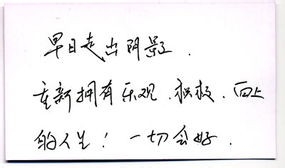 早日走出阴影.
重新拥有乐观.积极.向上
的人生!一切会好.